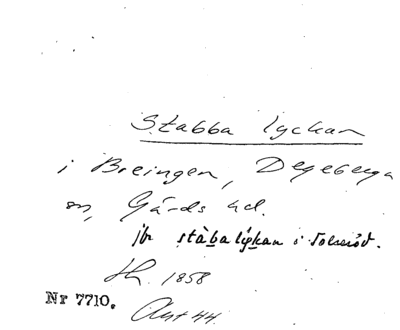 Stabba lyckan
i Breingen, Degeberga
sn, Gärds hd.
jfr stàbalýkan i Tolseröd.
1858
Nr 7710.
44